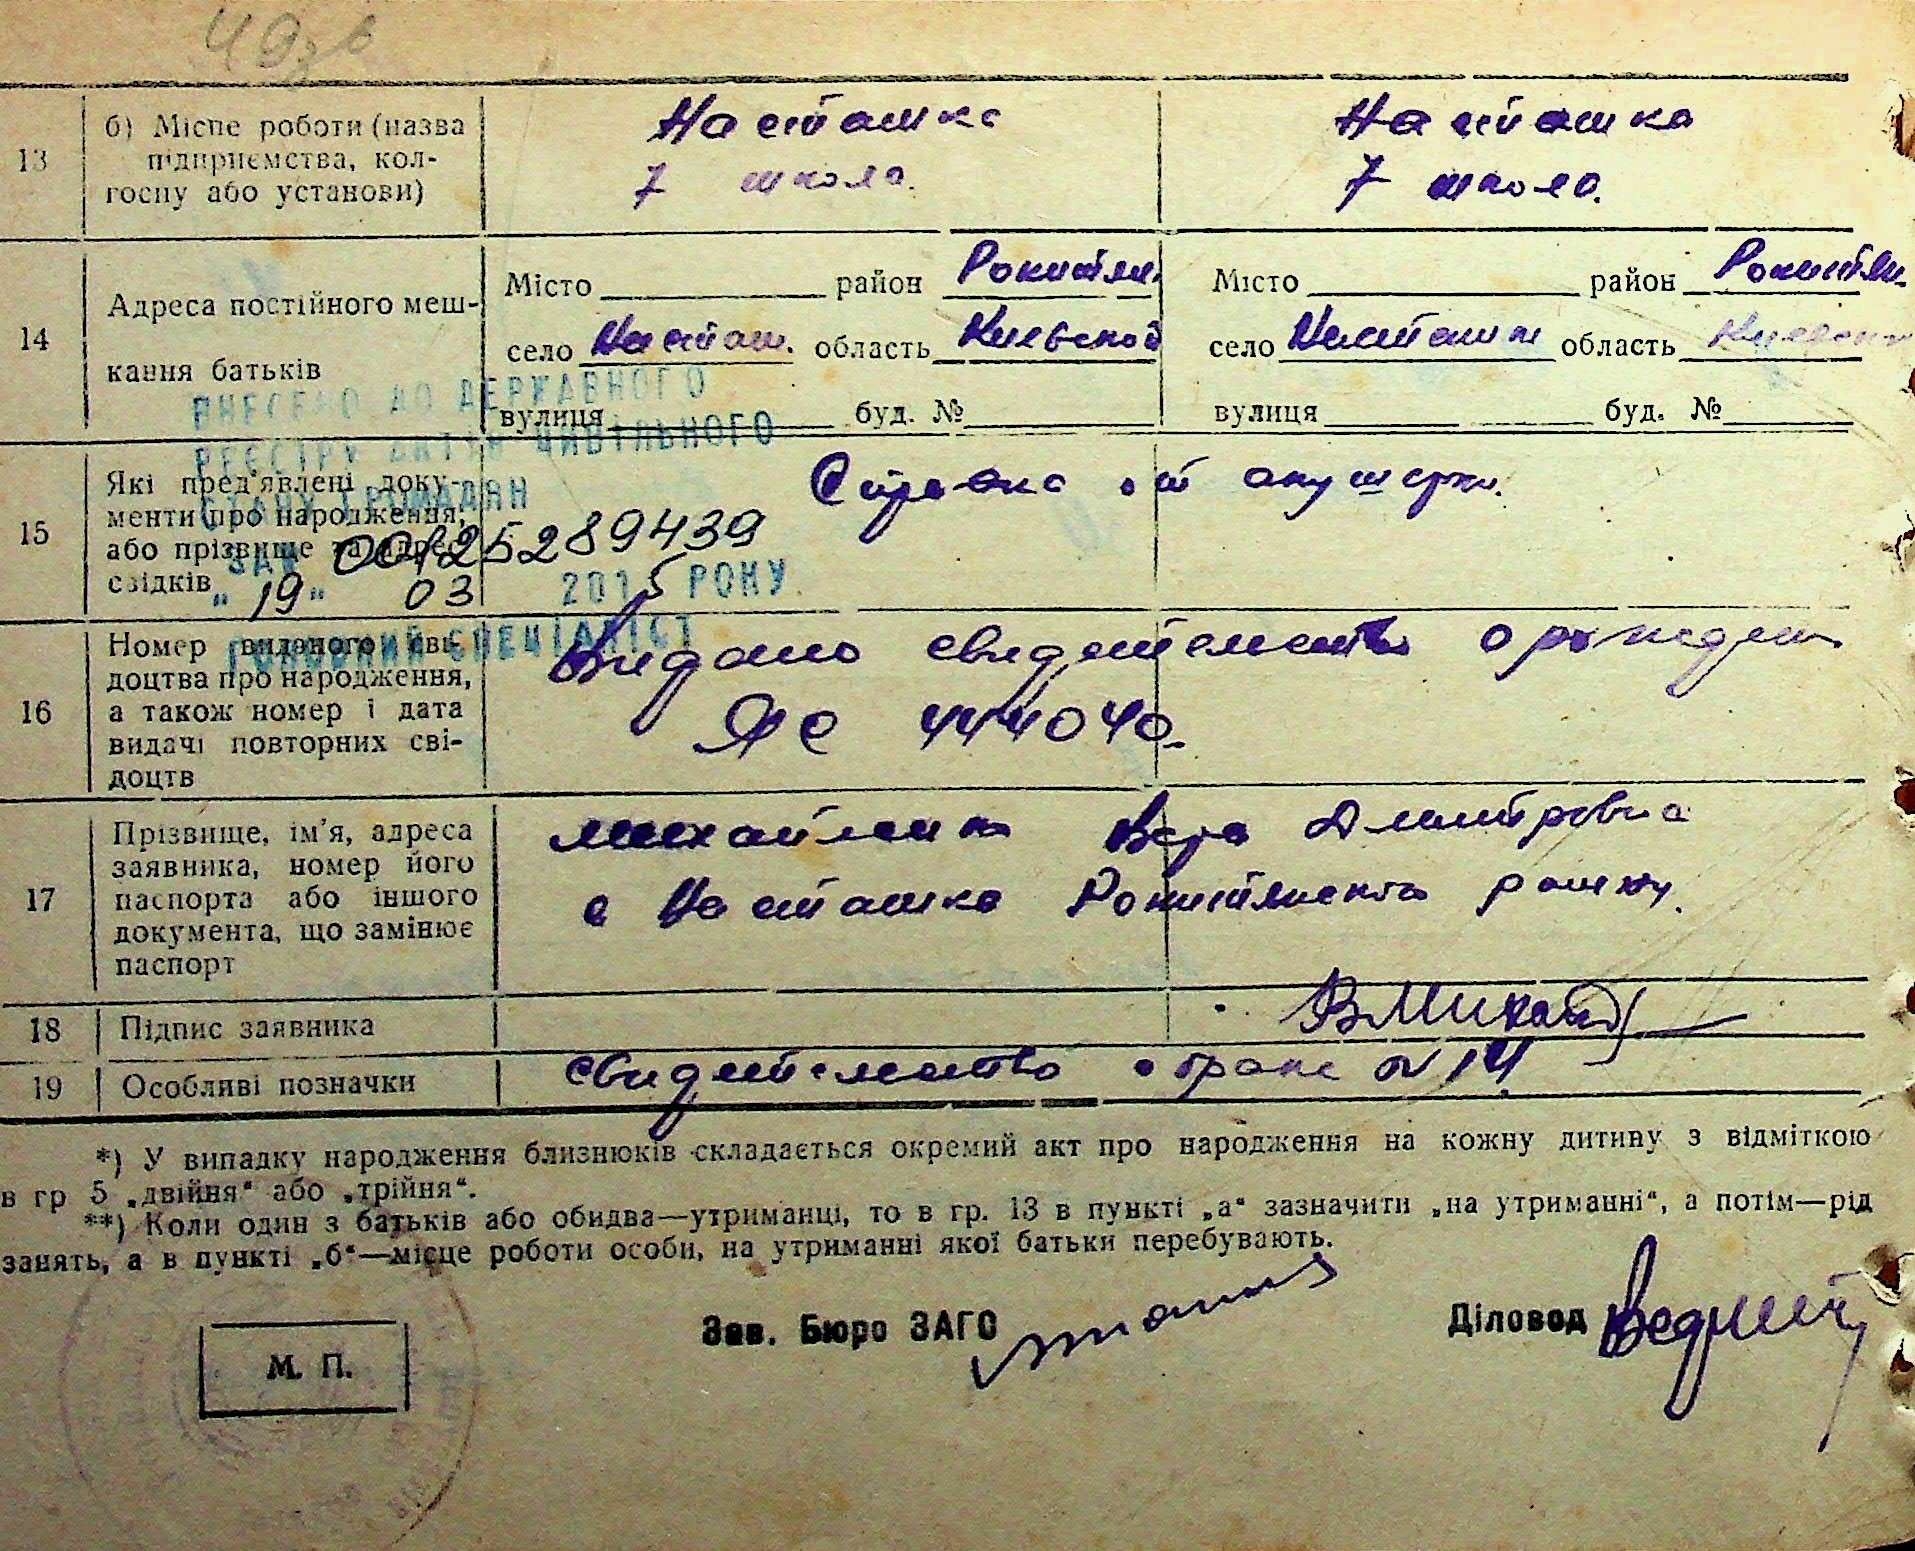 49зв
13 б) Місце роботи (назва Насташка Насташка
підприємства, кол- 7 школа. 7 школа.
госпу або установи)
Місто район Рокитян. Місто район Рокитян.
14 Адреса постійного меш-
село Насташ. область Киевской село Насташка область
кання батьків
ВНЕСЕНО ДО ДЕРЖАВНОГО
вулиця буд. № вулиця буд. №
РЕЄСТРУ АКТІВ ЦИВІЛЬНОГО
15 Які пред'явлені доку- Справка от акушерки.
СТАНУ ГРОМАДЯН
менти про народження,
або прізвище та адреса
ЗА № 00125289439
свідків
„19" 03 2015 РОКУ
ГОЛОВНИЙ СПЕЦІАЛІСТ
16 Номер виданого сві- Видано свидетельство о рожден
доцтва про народження,
а також номер і дата ЯС 444040.
видачі повторних сві-
доцтв
17 Прізвище, ім'я, адреса Вера Дмитровна
заявника, номер його
паспорта або іншого с Насташка Рокитянского
документа, що замінює
паспорт
18 Підпис заявника
19 Особливі позначки свидетельство о браке № 14
*) У випадку народження близнюків складається окремий акт про народження на кожну дитину з відміткою
в гр 5 „двійня“ або „трійня“.
**) Коли один з батьків або обидва—утриманці, то в гр. 13 в пункті „а“ зазначити „на утриманні“, а потім—рід
занять, а в пункті „б“—місце роботи особи, на утриманні якої батьки перебувають.
Зав. Бюро ЗАГС Діловод
М. П.